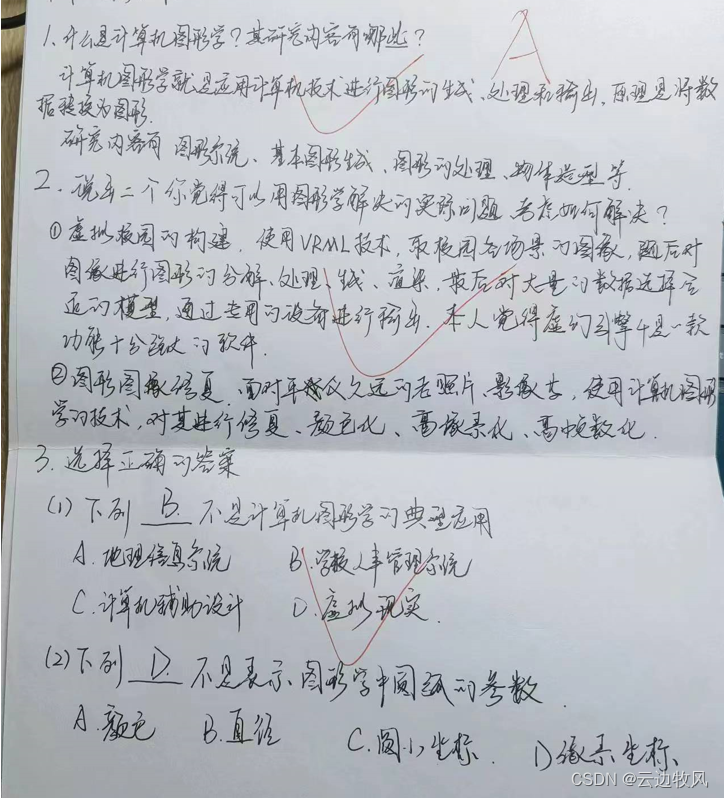 1. 什么是计算机图形学？其研究内容有哪些？
A
计算机图形学就是应用计算机技术进行图形的生成、处理和输出，原理是将数
据转换为图形.
研究内容有 图形系统、基本图形生成、图形的处理、物体造型等.
2. 说出二个你觉得可以用图形学解决的实际问题，考虑如何解决？
①虚拟校园的构建，使用VRML技术，取校园各场景的图像，随后对
图像进行图形的分解、处理、生成、渲染，最后对大量的数据选择合
适的模型，通过专用的设备进行输出. 本人觉得虚幻引擎4是一款
功能十分强大的软件.
②图形图像修复. 面对年代久远的老照片、影像等，使用计算机图形
学的技术，对其进行修复、颜色化、高像素化、高帧数化.
3. 选择正确的答案
(1) 下列 B. 不是计算机图形学的典型应用
A. 地理信息系统 B. 学校人事管理系统
C. 计算机辅助设计 D. 虚拟现实.
(2) 下列 D. 不是表示图形学中圆弧的参数.
A. 颜色 B. 直径 C. 圆心坐标. D 像素坐标、
CSDN @云边牧风